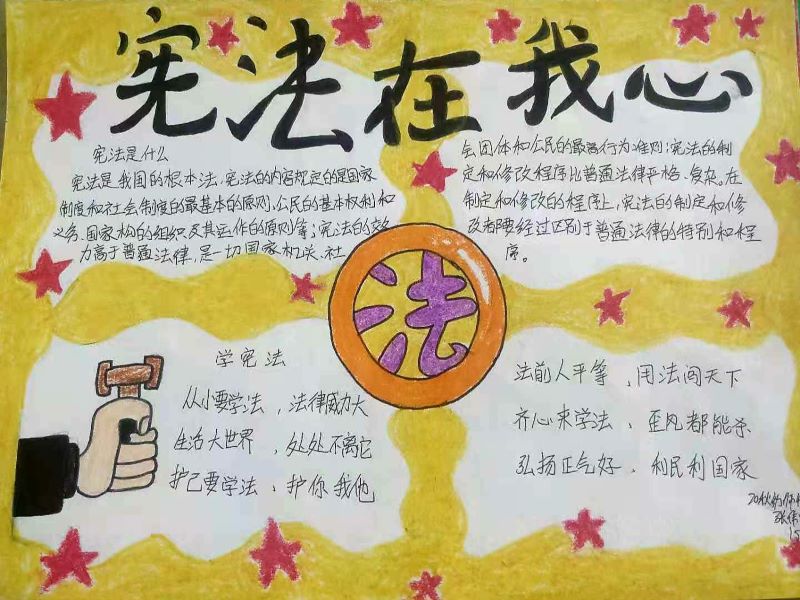 宪法在我心
宪法是什么
宪法是我国的根本法,宪法的内容规定的是国家
制度和社会制度的最基本的原则,公民的基本权利和
义务,国家构的组织及其运作的原则等;宪法的效
力高于普通法律,是一切国家机关、社
会团体和公民的最高行为准则;宪法的制
定和修改程序比普通法律严格、复杂。在
制定和修改的程序上,宪法的制定和修
改都要经过区别于普通法律的特别和程
序。
法
学宪法
从小要学法,法律威力大
生活大世界,处处不离它
护己要学法、护你我他
法前人平等、用法闯天下
齐心来学法、歪风都能杀
弘扬正气好、利民利国家